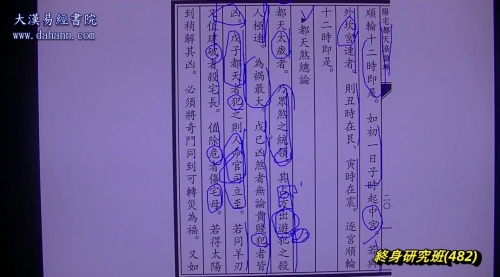 大漢易經書院
www.dahann.com
陽宅都天
順輪十二時即是。如初一日子時起中宮。若
外坎宮逆者。則丑時在艮、寅時在震。逐宮順輪
十二時即是。
都天煞總論
都天太歲者。乃眾煞之統領。其占方出遊犯之殺
人極速。為禍最大。戊己凶煞者無論貴賤犯者皆
凶。戊子都天者犯之則人命官司立至。若同羊刃
又值建破者殺宅長。值除危者傷宅母。若得太陽
到稍解其凶。必須將奇門同到可轉災為福。又如
二〇
終身研究班(482)